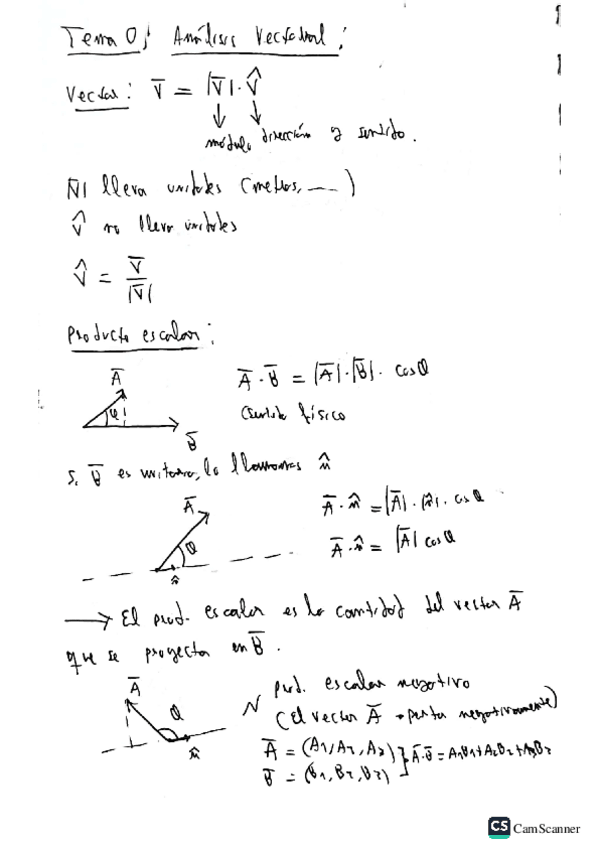 Tema 0; Análisis Vectorial:
Vector: V̅ = |V̅|·V̂
módulo dirección y sentido.
|V̅| lleva unidades (metros, ...)
V̂ no lleva unidades
V̂ = V̅ / |V̅|
Producto escalar:
A̅
φ
B̅
A̅ · B̅ = |A̅|·|B̅| · cos θ
físico
Si B̅ es unitario, lo llamamos n̂
A̅
θ
n̂
A̅ · n̂ = |A̅| · |n̂| · cos θ
A̅ · n̂ = |A̅| cos θ
→ El prod. escalar es la cantidad del vector A̅
que se proyecta en B̅.
A̅
θ
n̂
Prod. escalar negativo
(El vector A̅ negativamente)
A̅ = (A1, A2, A3)
B̅ = (B1, B2, B3)
} A̅·B̅ = A1B1+A2B2+A3B3
CS CamScanner